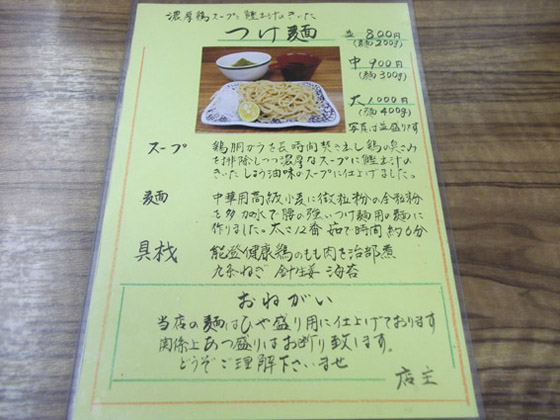 濃厚鶏スープに鰹出汁のきいた
つけ麺
並 800円
(麺200g)
中 900円
(麺300g)
大 1000円
(麺400g)
写真は並盛りです
スープ 鶏胴がらを長時間焚き出し鶏の臭さみ
を排除しつつ濃厚なスープに鰹出汁の
きいたしょう油味のスープに仕上げました。
麺 中華用高級小麦に微粒粉の全粒粉
を多加水で腰の強いつけ麺用の麺に
作りました。太さ12番 茹で時間 約6分
具材 能登健康鶏のもも肉を治部煮
九条ねぎ 針生姜 海苔
おねがい
当店の麺はひや盛り用に仕上げております
関係上あつ盛りはお断り致します。
どうぞご理解下さいませ
店主